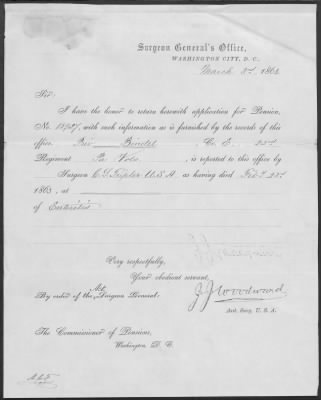 Surgeon General's Office,
WASHINGTON CITY, D. C.
March 186
Sir:
I have the honor to return herewith application for Pension,
No. with such information as is furnished by the records of this
office. Pri Bindel, Co. E. 23rd
Regiment Pa Vols, is reported to this office by
Surgeon C. S. Tripler U.S.A. as having died Feby
1863, at
of Enteritis
Very respectfully,
Your obedient servant,
By order of the Act. Surgeon General:
J. J. Woodward
Ast. Surg. U. S. A.
The Commissioner of Pensions,
Washington, D. C.